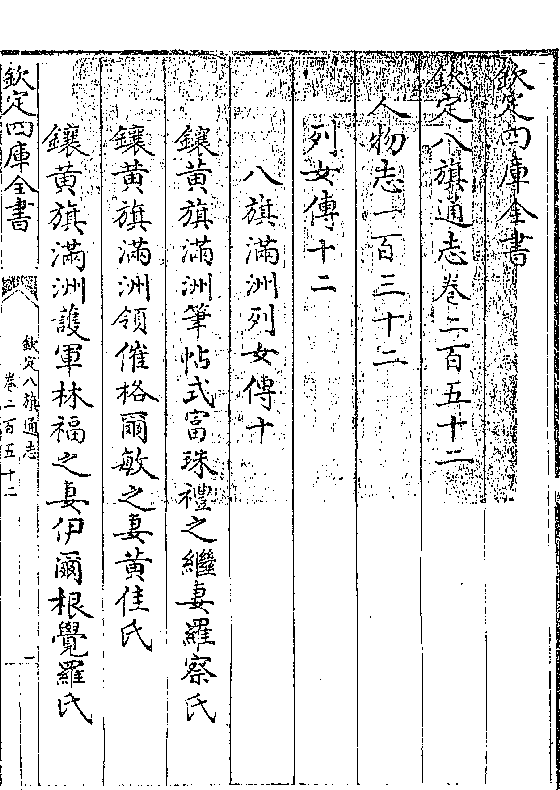 欽定四庫全書
欽定八旗通志卷二百五十二
人物志一百三十二
列女傳十二
八旗滿洲列女傳十
鑲黃旗滿洲筆帖式富珠禮之繼妻羅察氏
鑲黃旗滿洲領催格爾敏之妻黃佳氏
鑲黃旗滿洲護軍林福之妻伊爾根覺羅氏
欽定四庫全書
欽定八旗通志
卷二百五十二
一